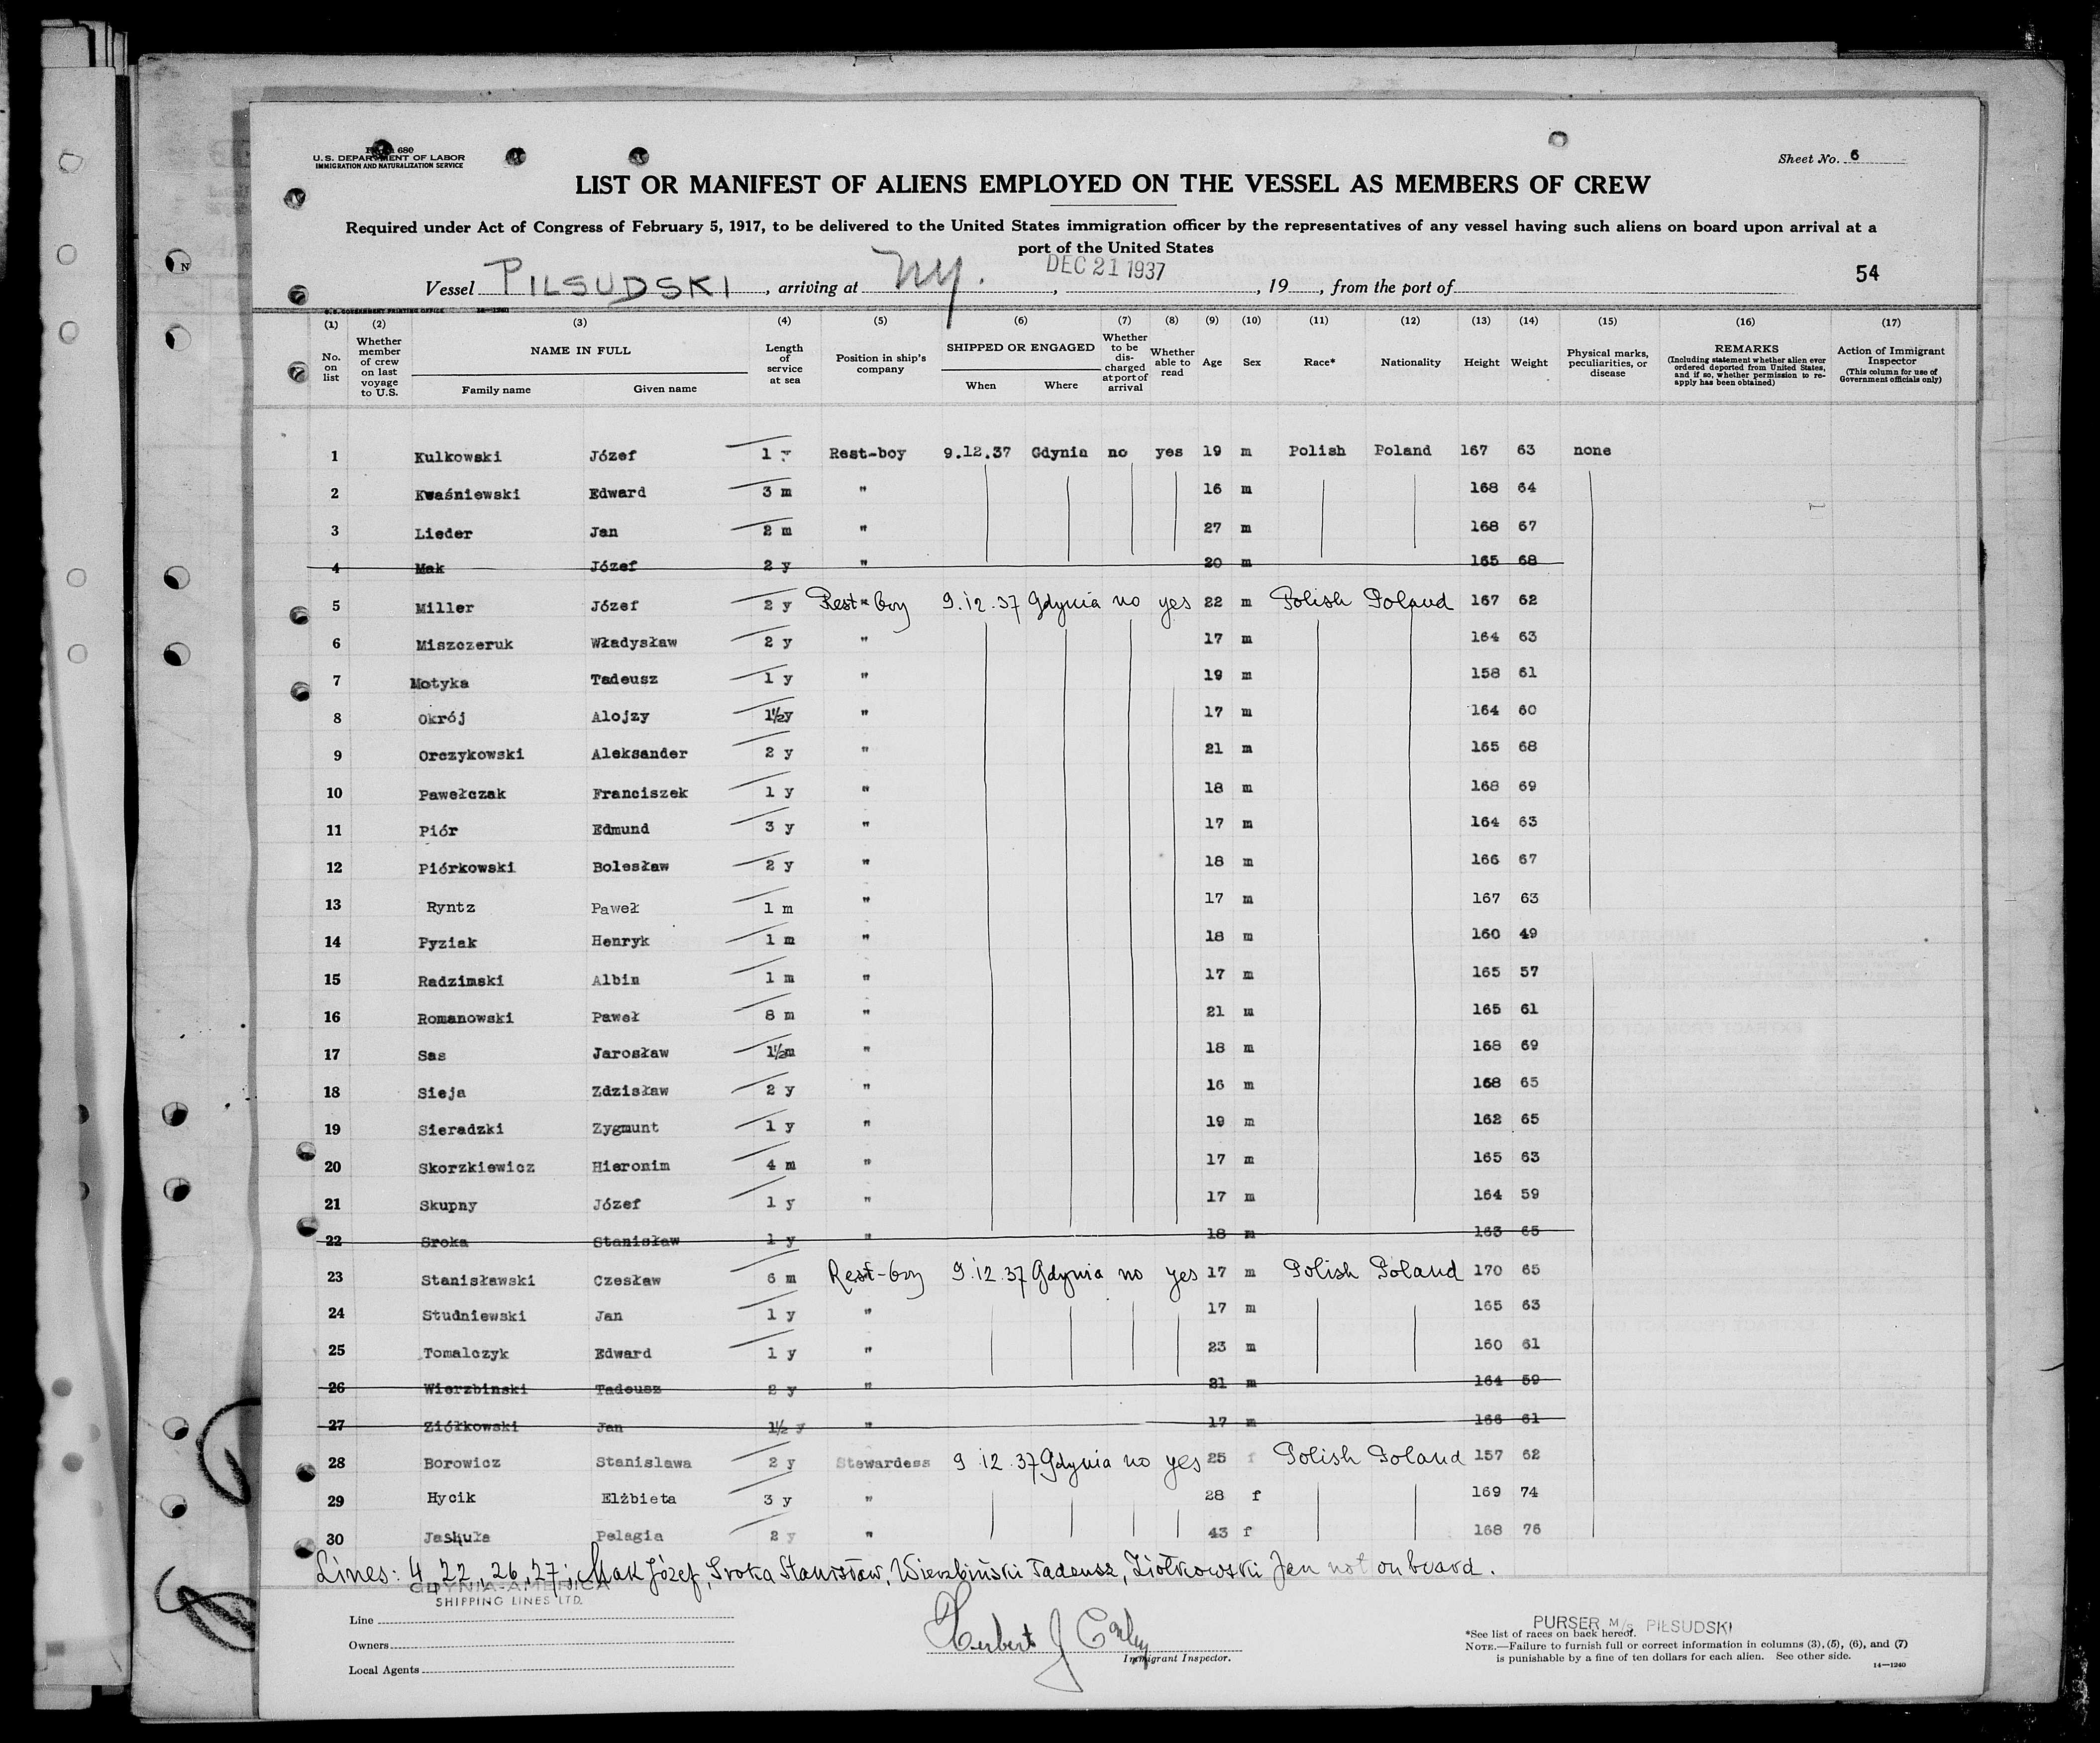 Form 680
U.S. DEPARTMENT OF LABOR
IMMIGRATION AND NATURALIZATION SERVICE
Sheet No. 6
LIST OR MANIFEST OF ALIENS EMPLOYED ON THE VESSEL AS MEMBERS OF CREW
Required under Act of Congress of February 5, 1917, to be delivered to the United States immigration officer by the representatives of any vessel having such aliens on board upon arrival at a
port of the United States
Vessel PILSUDSKI, arriving at NY., DEC 21 1937, 19, from the port of
54
U. S. GOVERNMENT PRINTING OFFICE
(1) (2) (3) (4) (5) (6) (7) (8) (9) (10) (11) (12) (13) (14) (15) (16) (17)
No. on list
Whether member of crew on last voyage to U.S.
NAME IN FULL
Family name Given name
Length of service at sea
Position in ship's company
SHIPPED OR ENGAGED
When Where
Whether to be discharged at port of arrival
Whether able to read
Age
Sex
Race*
Nationality
Height
Weight
Physical marks, peculiarities, or disease
REMARKS
(Including statement whether alien ever ordered deported from United States, and if so, whether permission to re-apply has been obtained)
Action of Immigrant Inspector
(This column for use of Government officials only)
1 Kulkowski Józef 1 y Rest-boy 9.12.37 Gdynia no yes 19 m Polish Poland 167 63 none
2 Kwaśniewski Edward 3 m " 16 m 168 64
3 Lieder Jan 2 m " 27 m 168 67
4 Mak Józef 2 y " 20 m 165 68
5 Miller Józef 2 y Rest-boy 9.12.37 Gdynia no yes 22 m Polish Poland 167 62
6 Miszczeruk Władysław 2 y " 17 m 164 63
7 Motyka Tadeusz 1 y " 19 m 158 61
8 Okrój Alojzy 1½y " 17 m 164 60
9 Orczykowski Aleksander 2 y " 21 m 165 68
10 Pawełczak Franciszek 1 y " 18 m 168 69
11 Piór Edmund 3 y " 17 m 164 63
12 Piórkowski Bolesław 2 y " 18 m 166 67
13 Ryntz Paweł 1 m " 17 m 167 63
14 Pyziak Henryk 1 m " 18 m 160 49
15 Radzimski Albin 1 m " 17 m 165 57
16 Romanowski Paweł 8 m " 21 m 165 61
17 Sas Jarosław 1½m " 18 m 168 69
18 Sieja Zdzisław 2 y " 16 m 168 65
19 Sieradzki Zygmunt 1 y " 19 m 162 65
20 Skorzkiewicz Hieronim 4 m " 17 m 165 63
21 Skupny Józef 1 y " 17 m 164 59
22 Sroka Stanisław 1 y " 18 m 163 65
23 Stanisławski Czesław 6 m Rest-boy 9.12.37 Gdynia no yes 17 m Polish Poland 170 65
24 Studniewski Jan 1 y " 17 m 165 63
25 Tomalczyk Edward 1 y " 23 m 160 61
26 Wierzbinski Tadeusz 2 y " 21 m 164 59
27 Ziółkowski Jan 1½ y " 17 m 166 61
28 Borowicz Stanislawa 2 y Stewardess 9.12.37 Gdynia no yes 25 f Polish Poland 157 62
29 Hycik Elżbieta 3 y " 28 f 169 74
30 Jaskuła Pelagia 2 y " 43 f 168 76
Lines: 4, 22, 26, 27; Mak Józef, Sroka Stanisław, Wierzbiński Tadeusz, Ziółkowski Jan not on board.
GDYNIA-AMERICA
SHIPPING LINES LTD.
Line
Owners
Local Agents
Herbert J
Immigrant Inspector.
PURSER M/S PIŁSUDSKI
*See list of races on back hereof.
NOTE.—Failure to furnish full or correct information in columns (3), (5), (6), and (7)
is punishable by a fine of ten dollars for each alien. See other side.
14—1240